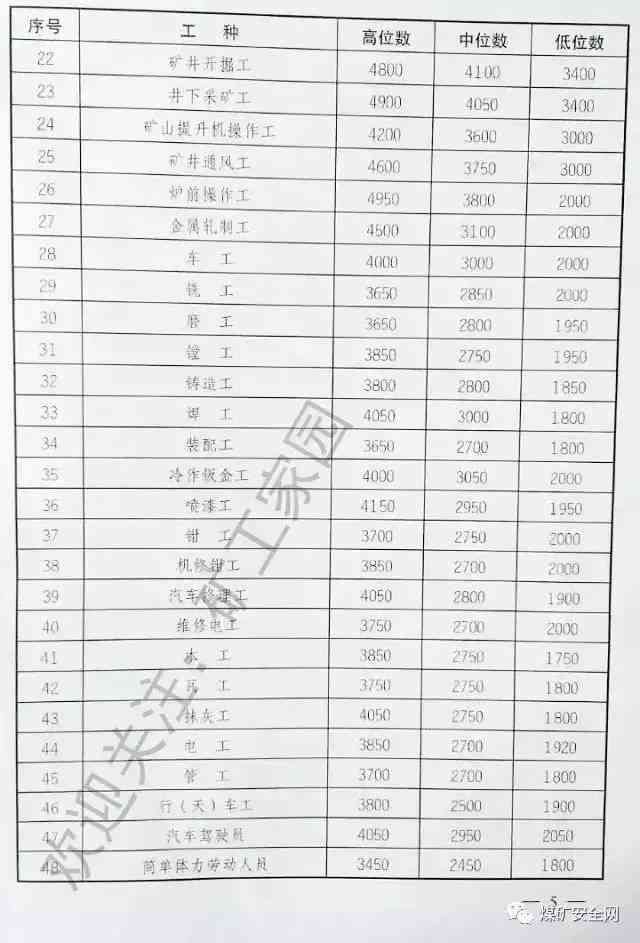 序号 工 种 高位数 中位数 低位数
22 矿井开掘工 4800 4100 3400
23 井下采矿工 4900 4050 3400
24 矿山提升机操作工 4200 3600 3000
25 矿井通风工 4600 3750 3000
26 炉前操作工 4950 3800 2000
27 金属轧制工 4500 3100 2000
28 车 工 4000 3000 2000
29 铣 工 3650 2850 2000
30 磨 工 3650 2800 1950
31 镗 工 3850 2750 1950
32 铸造工 3800 2800 1850
33 焊 工 4050 3000 1800
34 装配工 3650 2700 1800
35 冷作钣金工 4000 3050 2000
36 喷漆工 4150 2950 1950
37 钳 工 3700 2750 2000
38 机修钳工 3850 2700 2000
39 汽车修理工 4050 2800 1900
40 维修电工 3750 2700 2000
41 木 工 3850 2750 1750
42 瓦 工 3750 2750 1800
43 抹灰工 4050 2750 1800
44 电 工 3850 2700 1920
45 管 工 3700 2700 1800
46 行（天）车工 3800 2500 1900
47 汽车驾驶员 4050 2950 2050
48 简单体力劳动人员 3450 2450 1800
欢迎关注：矿工家园
— 5 —
煤矿安全网